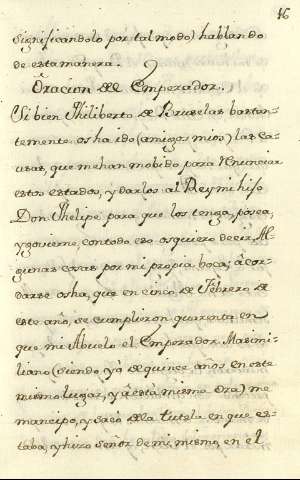 16
significandolo por tal modo) hablando
de esta manera.
Oracion del Emperador.
Si bien Philiberto de Bruselas bastan-
temente os ha ido (amigos mios) las cau-
sas, que me han mobido para renunciar
estos estados, y darlos al Rey mi hijo
Don Phelipe para que los tenga, posea,
y govierne, contodo eso os quiero decir Al-
gunas cosas por mi propia boca; acor-
darse os ha, que en cinco de Febrero de
este año, se cumplieron quarenta en
que mi Abuelo el Emperador Maximi-
liano (siendo yo de quince años en este
mismo lugar, y a esta misma ora) me
emancipo, y saco dela tutela en que es-
taba, y hizo señor de mi mismo, en el